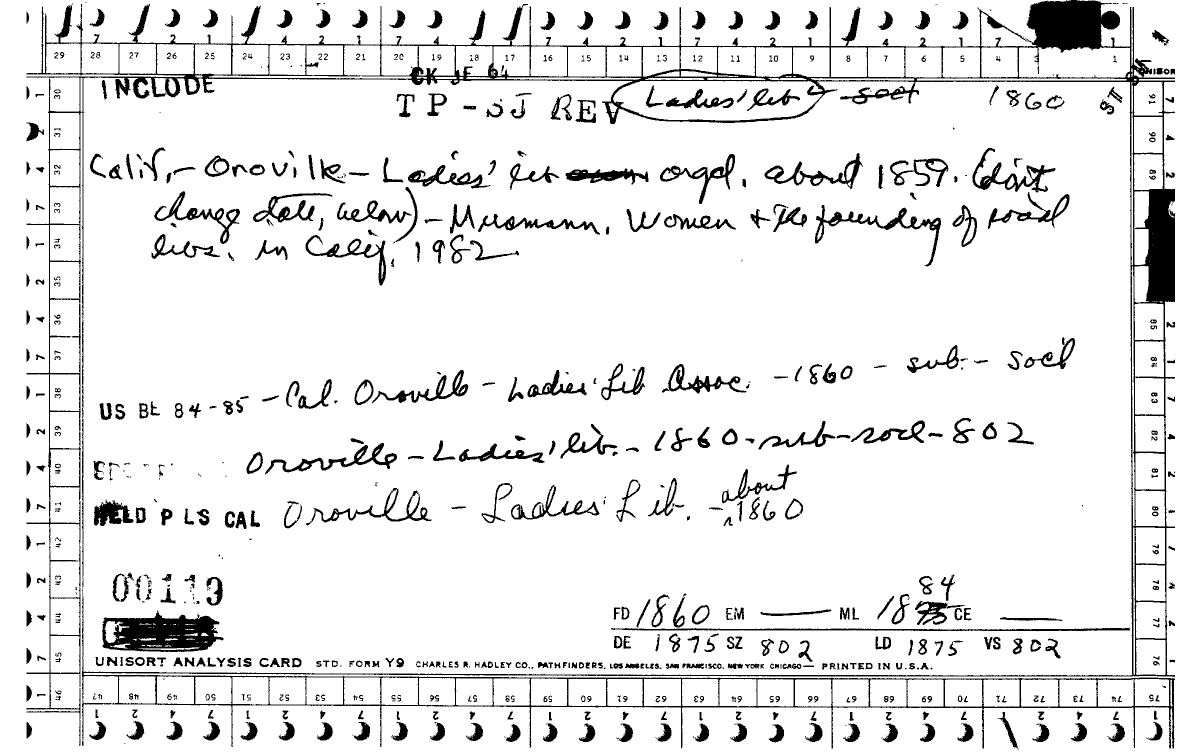 7 4 2 1 7 4 2 1 7 4 2 1 7 4 2 1 7 4 2 1 7 4 2 1 7 4 1
29 28 27 26 25 24 23 22 21 20 19 18 17 16 15 14 13 12 11 10 9 8 7 6 5 4 3 1
INCLUDE CK JE 64
TP-SJ REV Ladies' lib soc 1860
Calif. - Oroville - Ladies' lib orgd. about 1859. (don't
change date, below) - Musmann, Women & the founding of social
libs. in Calif. 1982
US BE 84-85 - Cal. Oroville - Ladies' Lib Assoc. - 1860 - sub. - soc'l
Oroville - Ladies' lib. - 1860 - sub - socl - 802
HELD P LS CAL Oroville - Ladies' Lib. - about 1860
00119
84
FD 1860 EM — ML 1875 CE —
DE 1875 SZ 802 LD 1875 VS 802
UNISORT ANALYSIS CARD STD. FORM Y9 CHARLES R. HADLEY CO., PATHFINDERS, LOS ANGELES, SAN FRANCISCO, NEW YORK CHICAGO — PRINTED IN U.S.A.
46 47 48 49 50 51 52 53 54 55 56 57 58 59 60 61 62 63 64 65 66 67 68 69 70 71 72 73 74 75